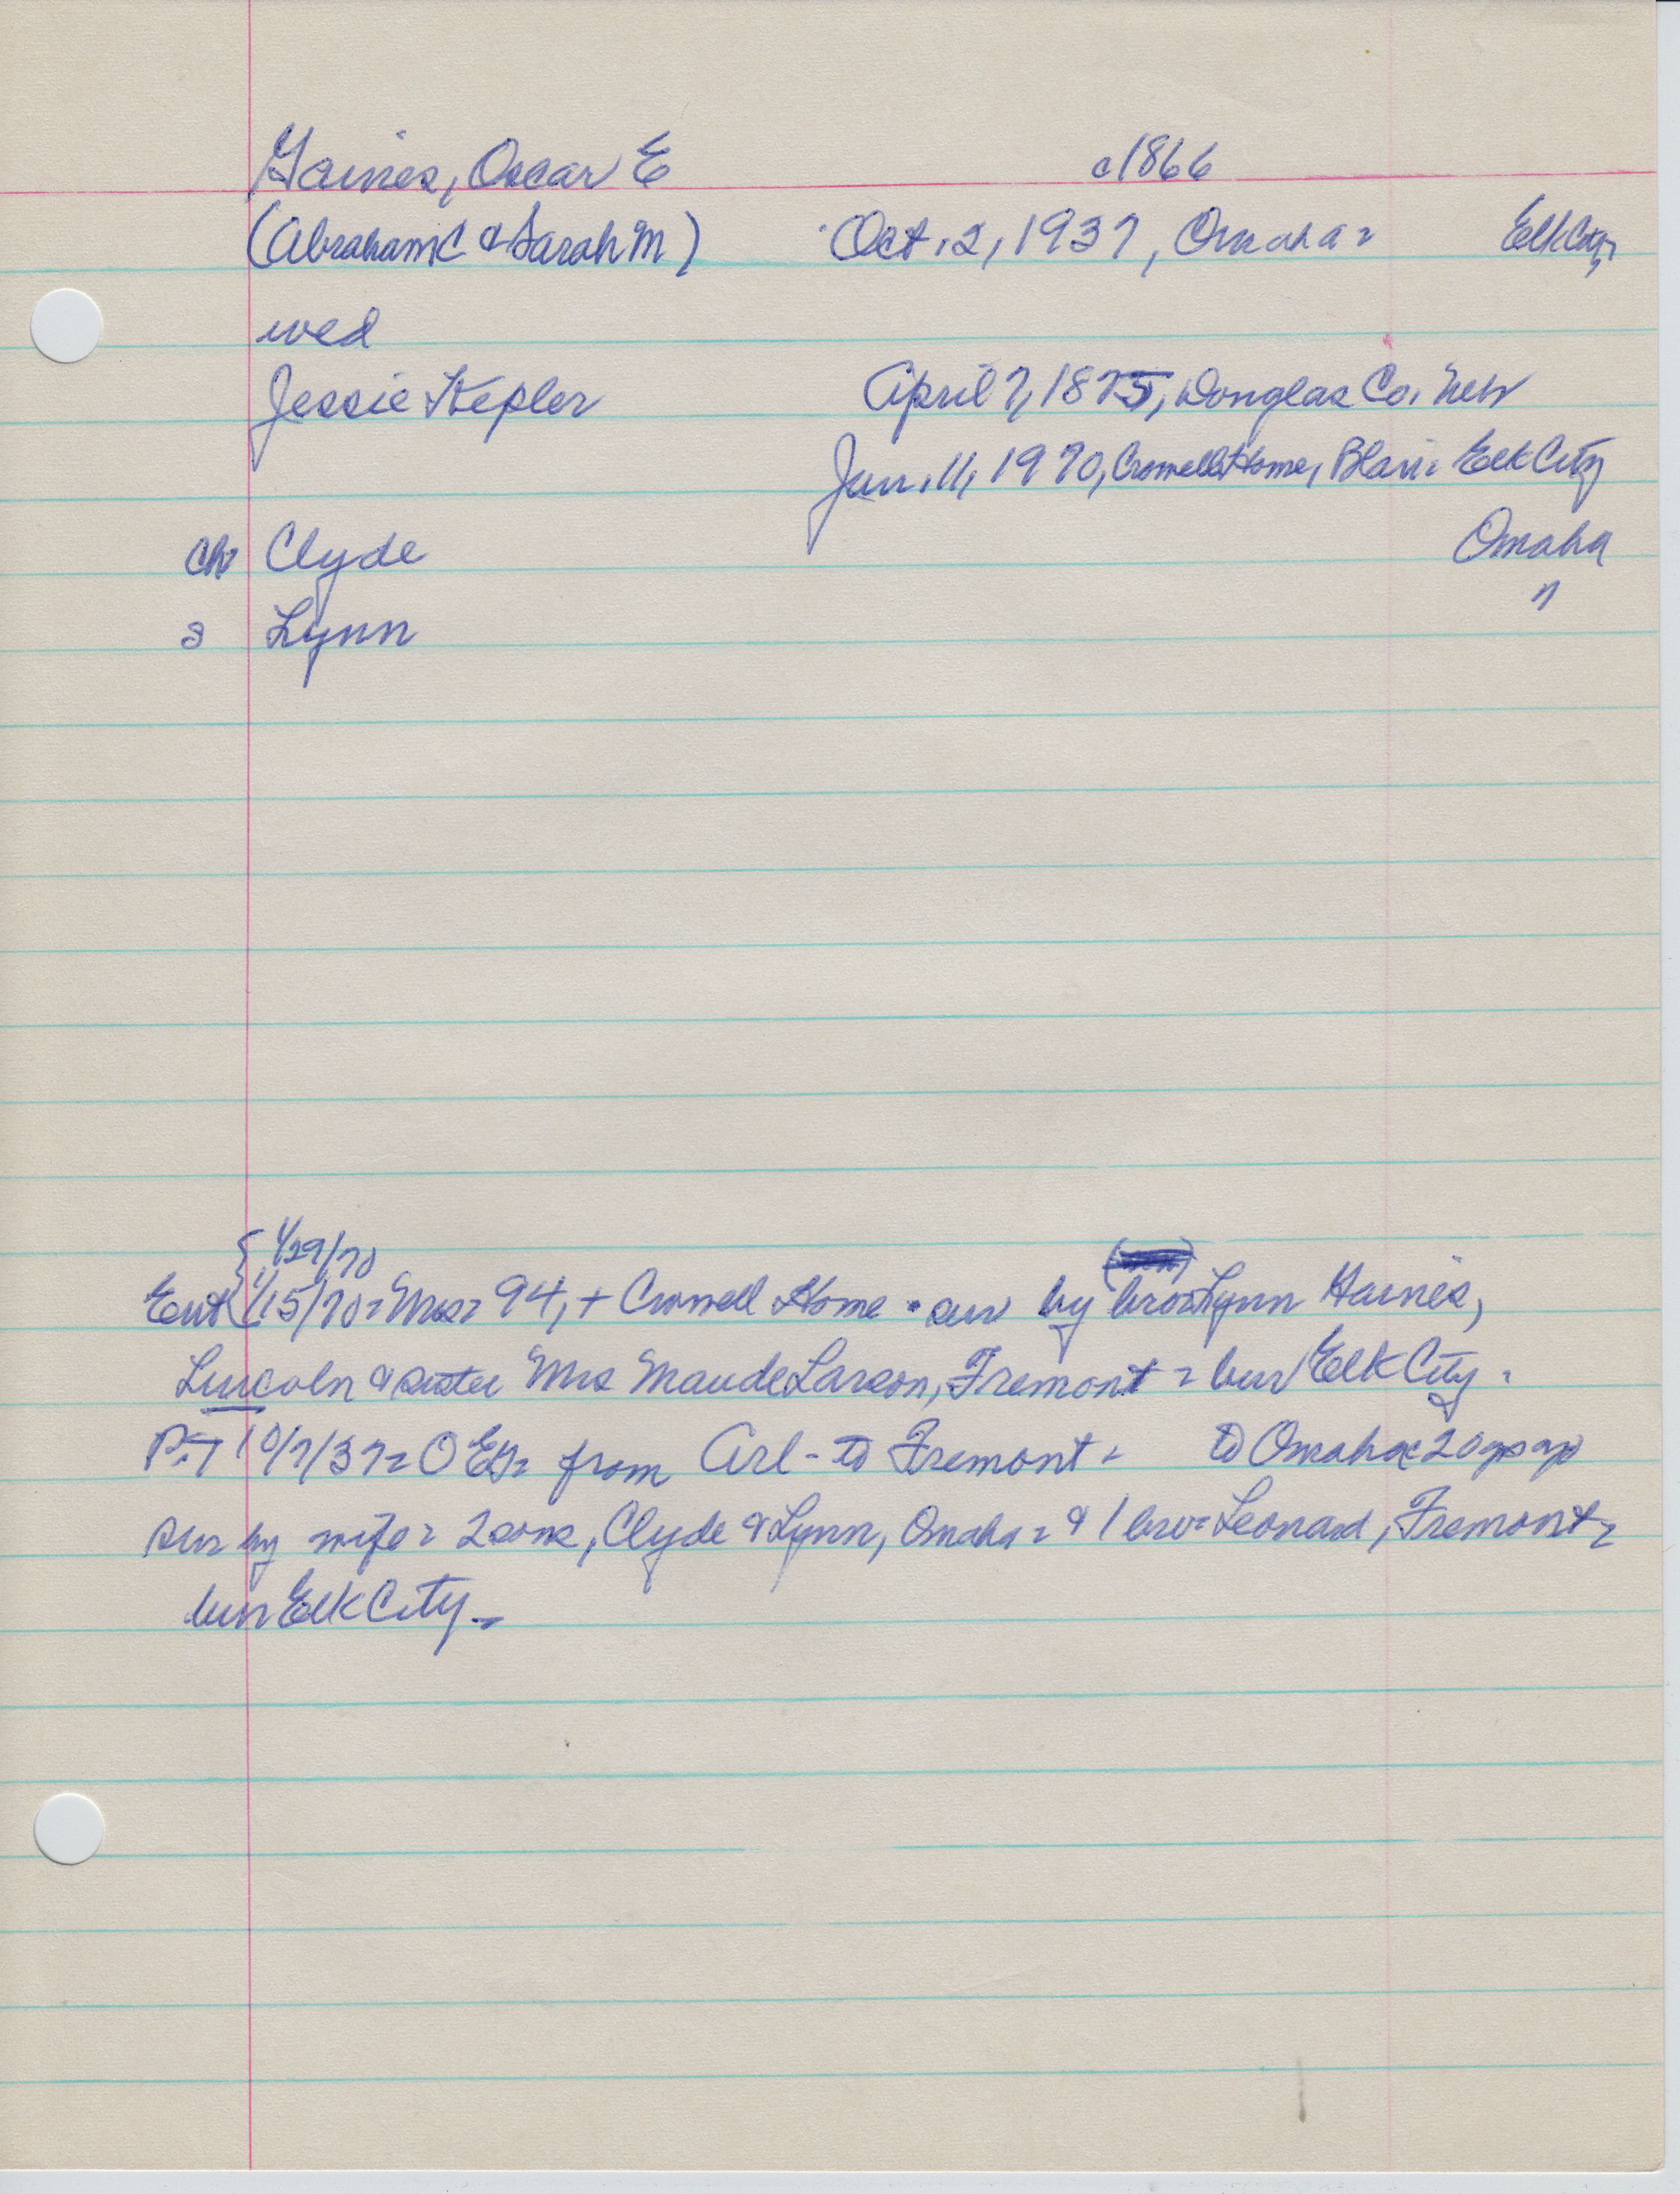 Gaines, Oscar E c1866
(Abraham C & Sarah M) Oct. 2, 1937, Omaha = Elk City,
wed
Jessie Kepler April 7, 1875, Douglas Co. Neb
Jan. 11, 1970, Crowell Home, Blair = Elk City
ch Clyde Omaha
s Lynn "
{ 1/29/70
Ent { 1/15/70 = Mrs = 94, + Crowell Home · sur by bro = Lynn Haines,
Lincoln & sister Mrs Maude Larson, Fremont = bur Elk City.
P-T 10/7/37 = O EG = from Arl - to Fremont = to Omaha c 20 yrs ago
sur by wife = 2 sons, Clyde & Lynn, Omaha = & 1 bro = Leonard, Fremont =
bur Elk City -